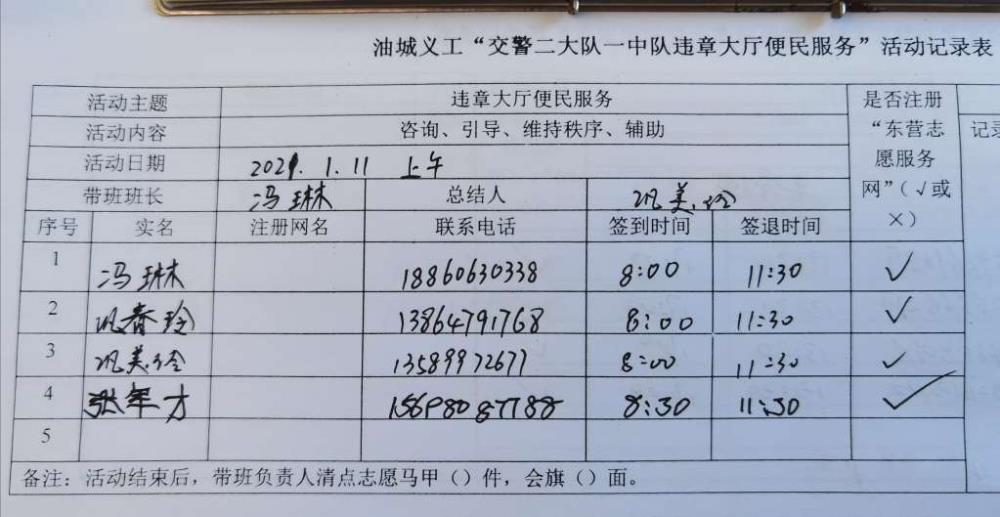 油城义工“交警二大队一中队违章大厅便民服务”活动记录表
活动主题 违章大厅便民服务 是否注册“东营志愿服务网”(√或×)
活动内容 咨询、引导、维持秩序、辅助 记录
活动日期 2021.1.11 上午
带班班长 冯琳林 总结人 巩美玲
序号 实名 注册网名 联系电话 签到时间 签退时间
1 冯琳林 18860630338 8:00 11:30 √
2 巩春玲 13864791768 8:00 11:30 √
3 巩美玲 13589972677 8:00 11:30 √
4 张军才 8:30 11:30 √
5
备注:活动结束后,带班负责人清点志愿马甲()件,会旗()面。